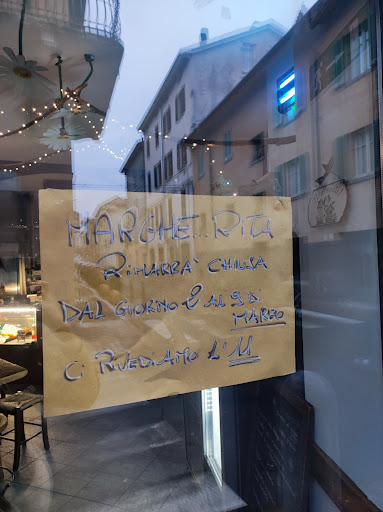 MARGHE...RITA
RIMARRA' CHIUSA
DAL GIORNO 2 AL 9 DI
MARZO
CI RIVEDIAMO L'11